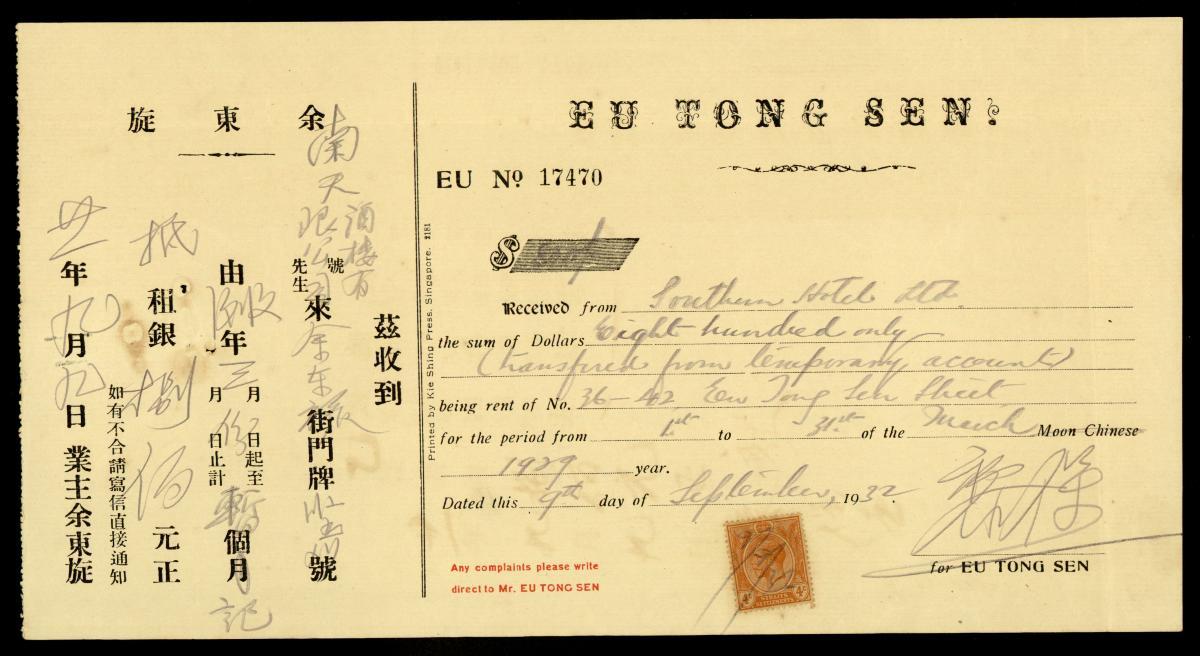 EU TONG SEN.
EU No 17470
$
Received from Southern Hotel Ltd
the sum of Dollars Eight hundred only
(transfered from temporary account)
being rent of No. 36-42 Eu Tong Sen Street
for the period from 1st to 31st of the March Moon Chinese
1929 year.
Dated this 9th day of September, 1932
for EU TONG SEN
Any complaints please write
direct to Mr. EU TONG SEN
STRAITS SETTLEMENTS
4c 4c
Printed by Kie Shing Press, Singapore. 2181
余東旋
茲收到
南天酒樓有限公司
號
先生
來余东旋街門牌號
由年三月份日起至
月日止計暫個月
記
抵租銀捌佰元正
如有不合請寫信直接通知
廿一年九月九日業主余東旋